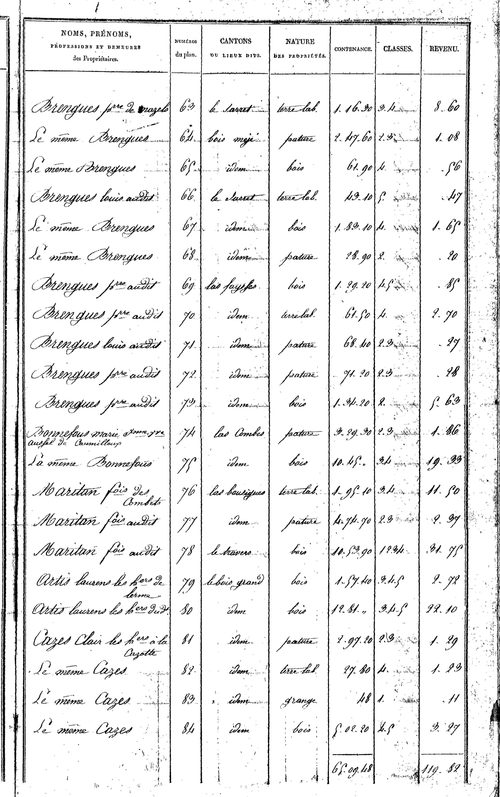 NOMS, PRÉNOMS, PROFESSIONS ET DEMEURES des Propriétaires. | NUMÉROS du plan. | CANTONS OU LIEUX DITS. | NATURE DES PROPRIÉTÉS. | CONTENANCE. | CLASSES. | REVENU.
Brengues pre de mazels 63 le sarret terre lab. 1.16.30 3.4 8.60
Le même Brengues 64 bois méjé pature 2.47.60 2.3 1.08
Le même Brengues 65 idem bois 61.90 4 .56
Brengues louis audit 66 le Sarret terre lab. 43.10 5 .47
Le même Brengues 67 idem bois 1.83.10 4 1.65
Le même Brengues 68 idem pature 28.90 2 .20
Brengues pre audit 69 las faysses bois 1.29.20 4.5 .85
Brengues pre audit 70 idem terre lab. 61.50 4 2.70
Brengues louis audit 71 idem pature 68.40 2.3 .27
Brengues pre audit 72 idem pature 71.20 2.3 .28
Brengues pre audit 73 idem bois 1.34.20 2 5.63
Bonnefous marie
74 las Combes pature 3.29.30 2.3 1.86
La même Bonnefous 75 idem bois 10.45. 3.4 19.33
Maritan fois des
Combets 76 las bousigues terre lab. 1.95.10 3.4 11.50
Maritan fois audit 77 idem pature 4.74.70 2.3 2.37
Maritan fois audit 78 le travers bois 10.53.90 1.2.3.4 31.75
Artis laurens les hers de
79 le bois grand bois 1.57.40 3.4.5 2.72
Artis laurens les hers dudit 80 idem bois 12.81. 3.4.5 22.10
Cazes Clair les hers à la
Cazotte 81 idem pature 2.97.20 2.3 1.29
Le même Cazes 82 idem terre lab. 27.80 4. 1.23
Le même Cazes 83 idem grange 48 1. .11
Le même Cazes 84 idem bois 5.02.20 4.5 3.27
65.09.48 119.82